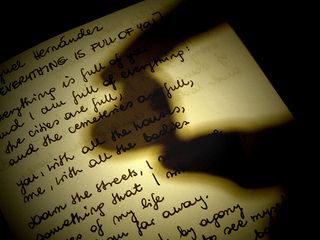 guel Hernández
(EVERYTHING IS FULL OF YOU)
Everything is full of you,
and I am full of everything:
the cities are full,
and the cemeteries are full,
you, with all the houses,
me, with all the bodies
down the streets, I
something that I
of my life
far away.
by agony
to see myself